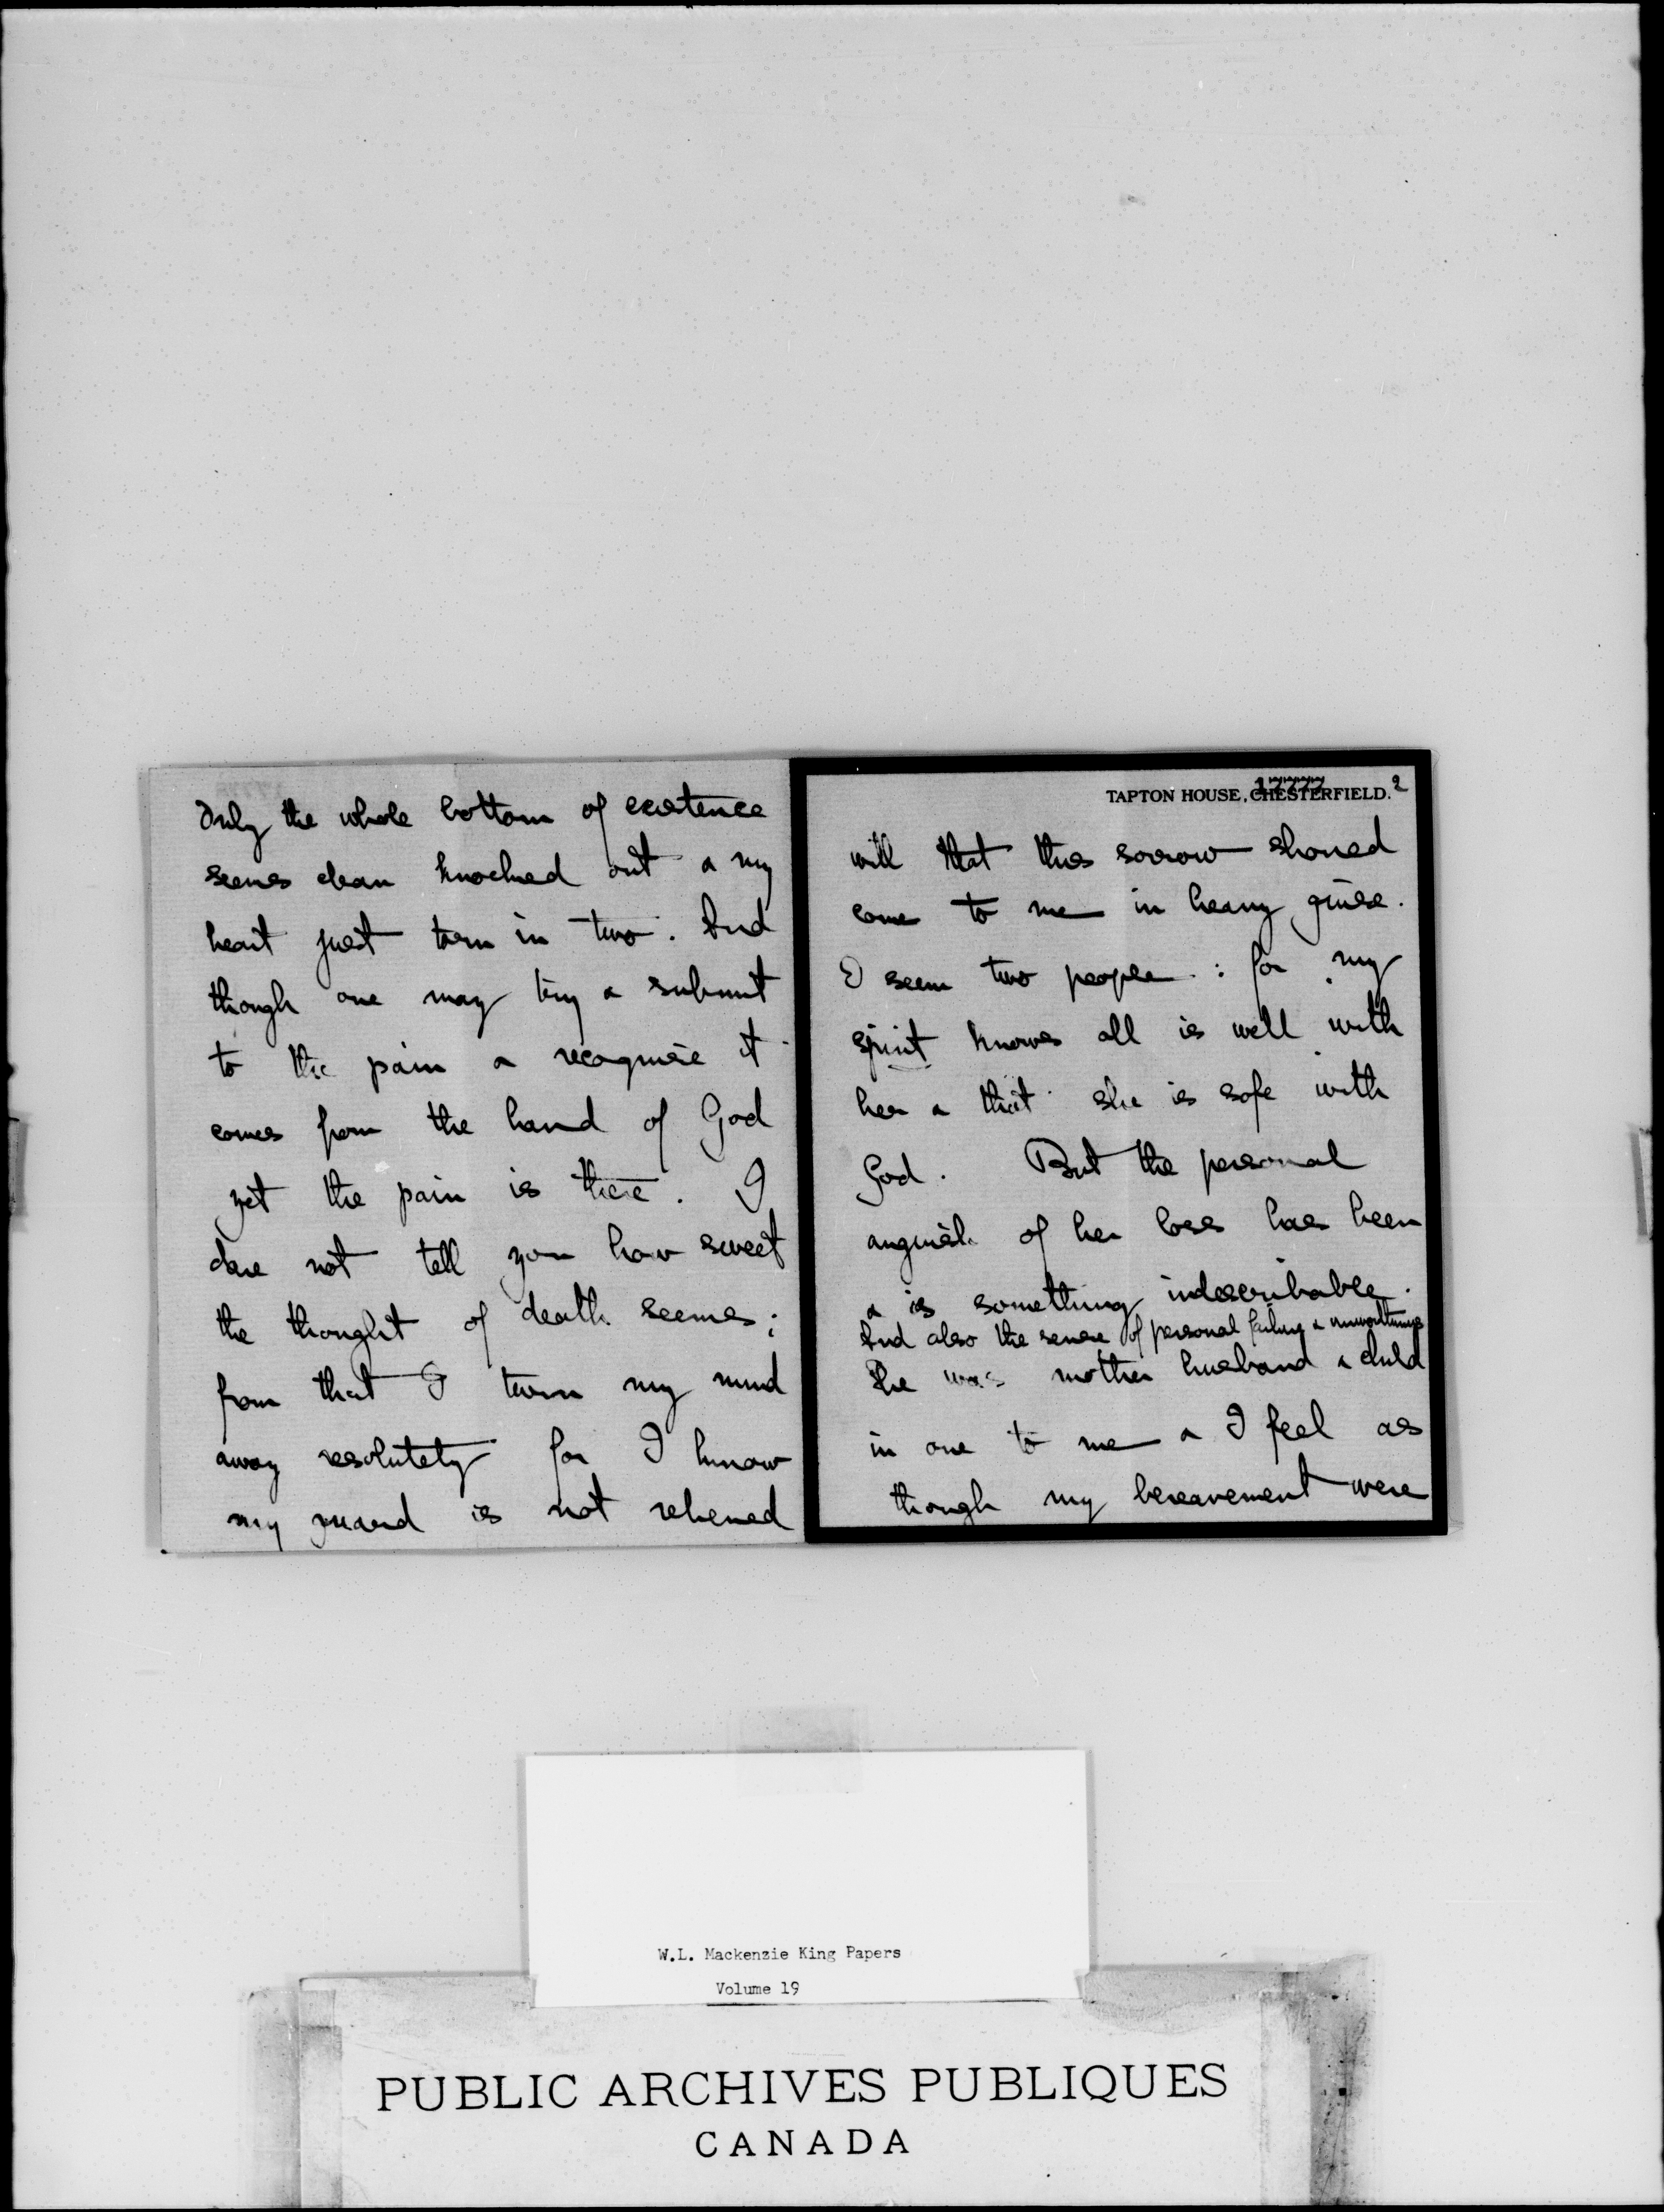 Only the whole bottom of existence
seems clean knocked out & my
heart just torn in two. And
though one may try & submit
to the pain & recognise it
comes from the hand of God
yet the pain is there. I
dare not tell you how sweet
the thought of death seems;
from that I turn my mind
away resolutely for I know
my guard is not relieved
TAPTON HOUSE, CHESTERFIELD. 2
17777
will that this sorrow should
come to me in heavy guise.
I seem two people: for my
spirit knows all is well with
her & that she is safe with
God. But the personal
anguish of her loss has been
& is something indescribable.
And also the sense of personal failure & unworthiness
She was mother husband & child
in one to me & I feel as
though my bereavement were
W.L. Mackenzie King Papers
Volume 19
PUBLIC ARCHIVES PUBLIQUES
CANADA